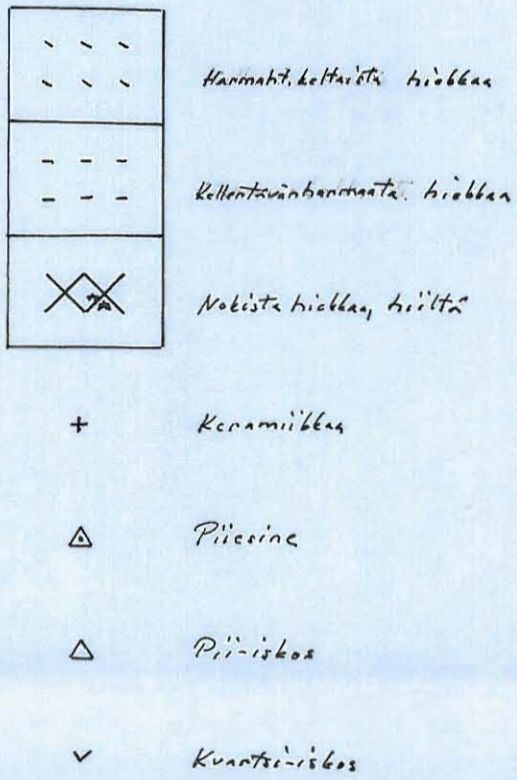 Harmaht. keltaista hiekkaa
Kellertävänharmaata hiekkaa
Nokista hiekkaa, hiiltä
+ Keramiikkaa
Piiesine
Pii-iskos
Kvartsi-iskos